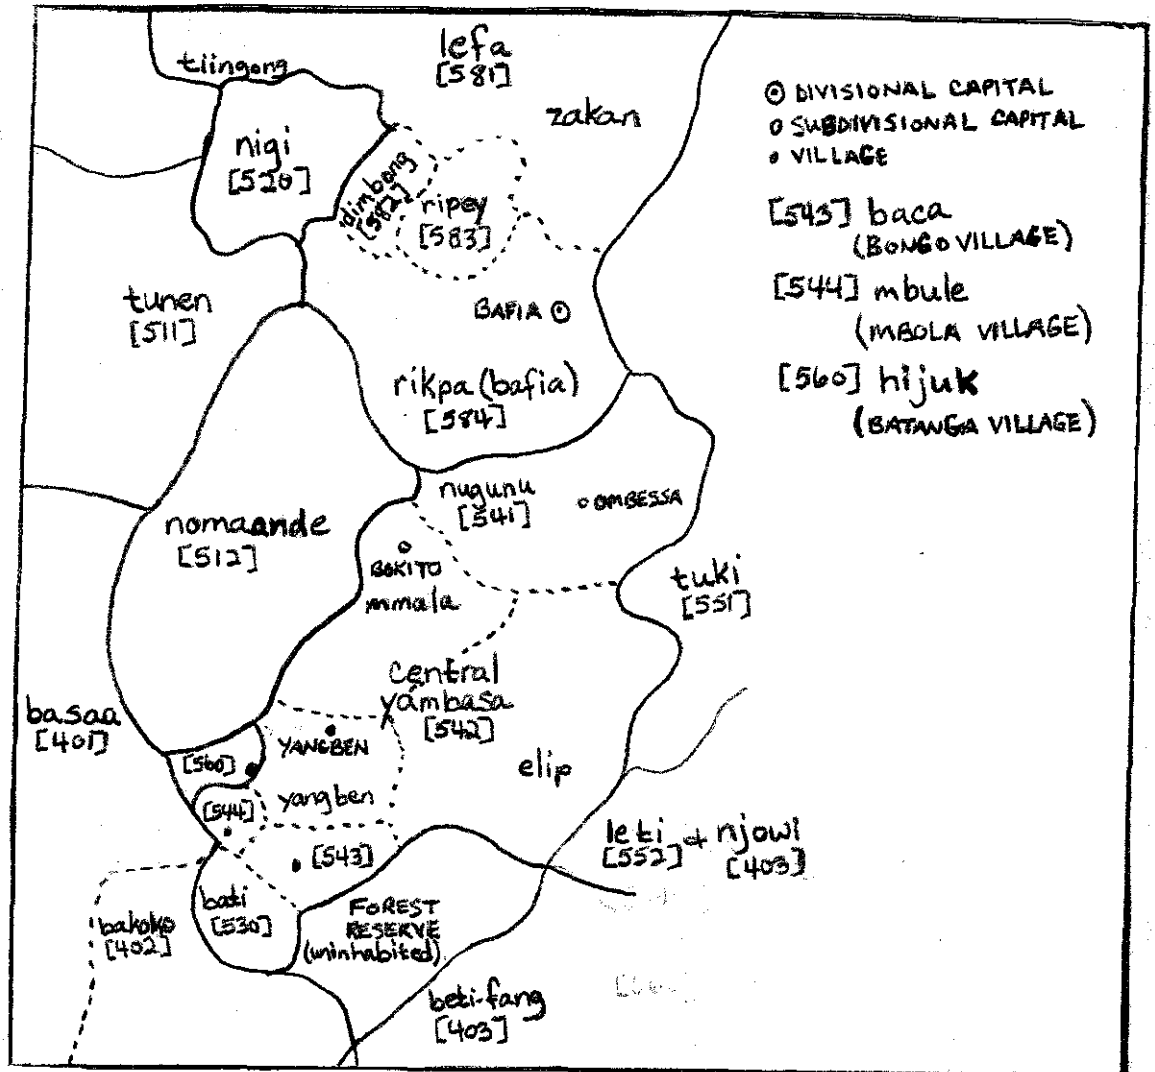 tiingong
lefa
[581]
zakan
nigi
[520]
dimbong
[582]
ripey
[583]
tunen
[511]
BAFIA
rikpa (bafia)
[584]
nugunu
[541]
OMBESSA
nomaande
[512]
BOKITO
mmala
tuki
[551]
central
yambasa
[542]
basaa
[401]
YANGBEN
[560]
elip
yangben
[544]
[543]
leti + njowi
[552] [403]
bati
[530]
bakoko
[402]
FOREST
RESERVE
(uninhabited)
beti-fang
[403]
DIVISIONAL CAPITAL
SUBDIVISIONAL CAPITAL
VILLAGE
[543] baca
(BONGO VILLAGE)
[544] mbule
(MBOLA VILLAGE)
[560] hijuk
(BATANGA VILLAGE)